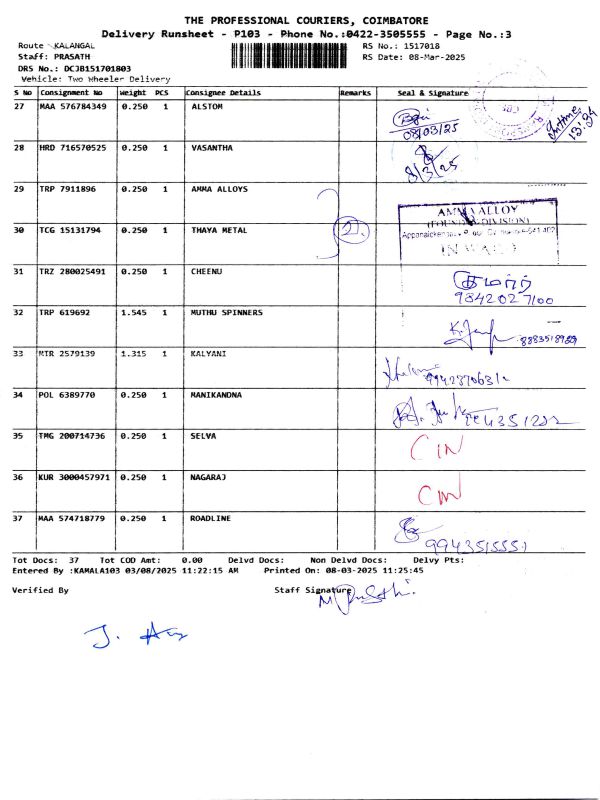 THE PROFESSIONAL COURIERS, COIMBATORE
Delivery Runsheet - P103 - Phone No.:0422-3505555 - Page No.:3
Route KALANGAL
RS No.: 1517018
Staff: PRASATH
RS Date: 08-Mar-2025
DRS No.: DCJB151701803
Vehicle: Two Wheeler Delivery
S No Consignment No Weight PCS Consignee Details Remarks Seal & Signature
27 MAA 576784349 0.250 1 ALSTOM
08/03/25
28 HRD 716570525 0.250 1 VASANTHA
8/3/25
29 TRP 7911896 0.250 1 AMMA ALLOYS
AMMA ALLOY
(FOUNDRY DIVISION)
30 TCG 15131794 0.250 1 THAYA METAL
INWARD
31 TRZ 280025491 0.250 1 CHEENU
98420 27100
32 TRP 619692 1.545 1 MUTHU SPINNERS
33 MTR 2579139 1.315 1 KALYANI
34 POL 6389770 0.250 1 MANIKANDNA
35 TMG 200714736 0.250 1 SELVA
36 KUR 3000457971 0.250 1 NAGARAJ
37 MAA 574718779 0.250 1 ROADLINE
Tot Docs: 37 Tot COD Amt: 0.00 Delvd Docs: Non Delvd Docs: Delvy Pts:
Entered By :KAMALA103 03/08/2025 11:22:15 AM Printed On: 08-03-2025 11:25:45
Verified By Staff Signature